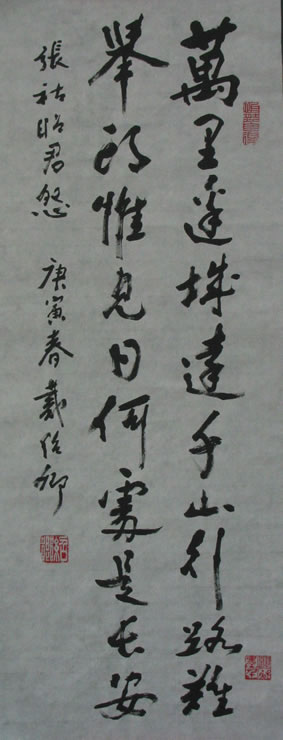 萬里邊城遠千山行路難
舉頭惟見日何處是長安
張祜昭君怨 庚寅春戴卿